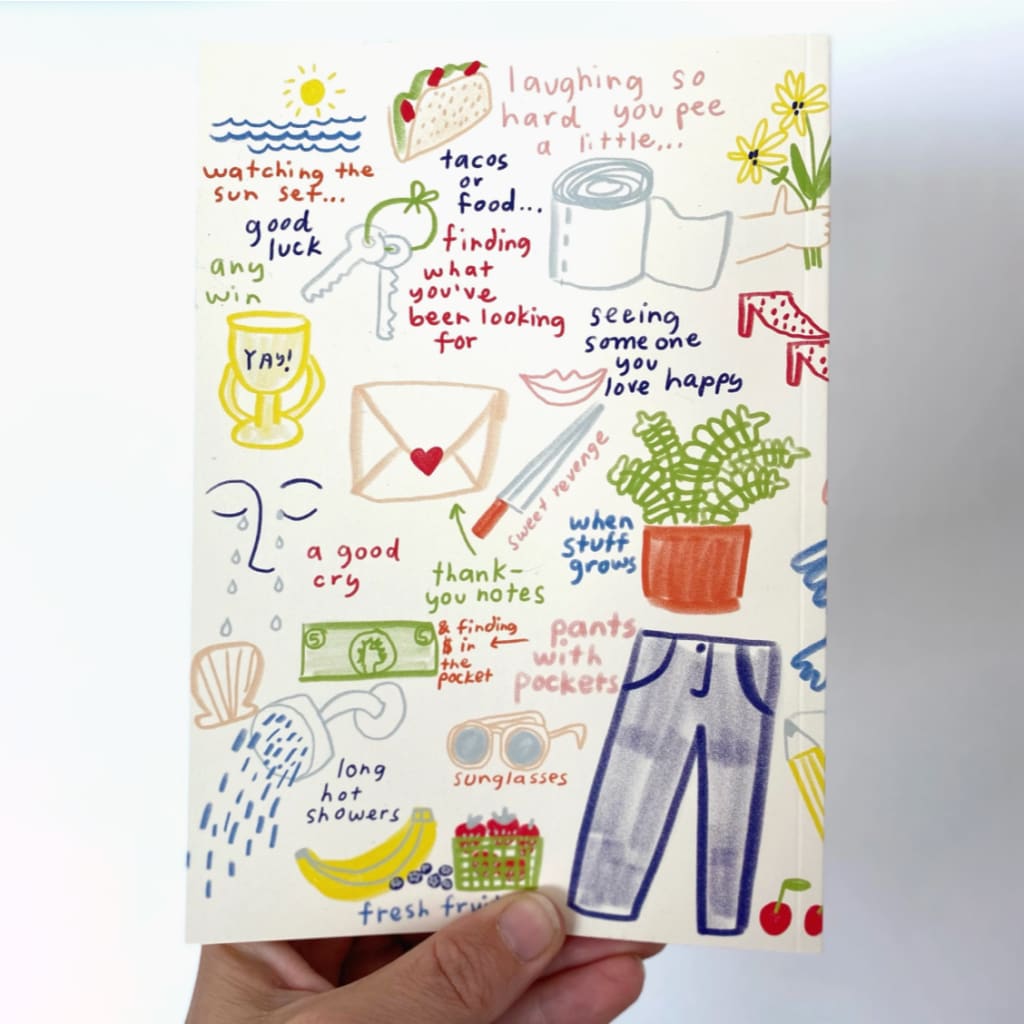 laughing so
hard you pee
a little...
watching the
sun set...
tacos
or
food...
good
luck
any
win
finding
what
you've
been looking
for
YAY!
seeing
someone
you
love happy
sweet revenge
when
stuff
grows
a good
cry
thank-
you notes
5 5
& finding
$ in
the
pocket
pants
with
pockets
long
hot
showers
sunglasses
fresh